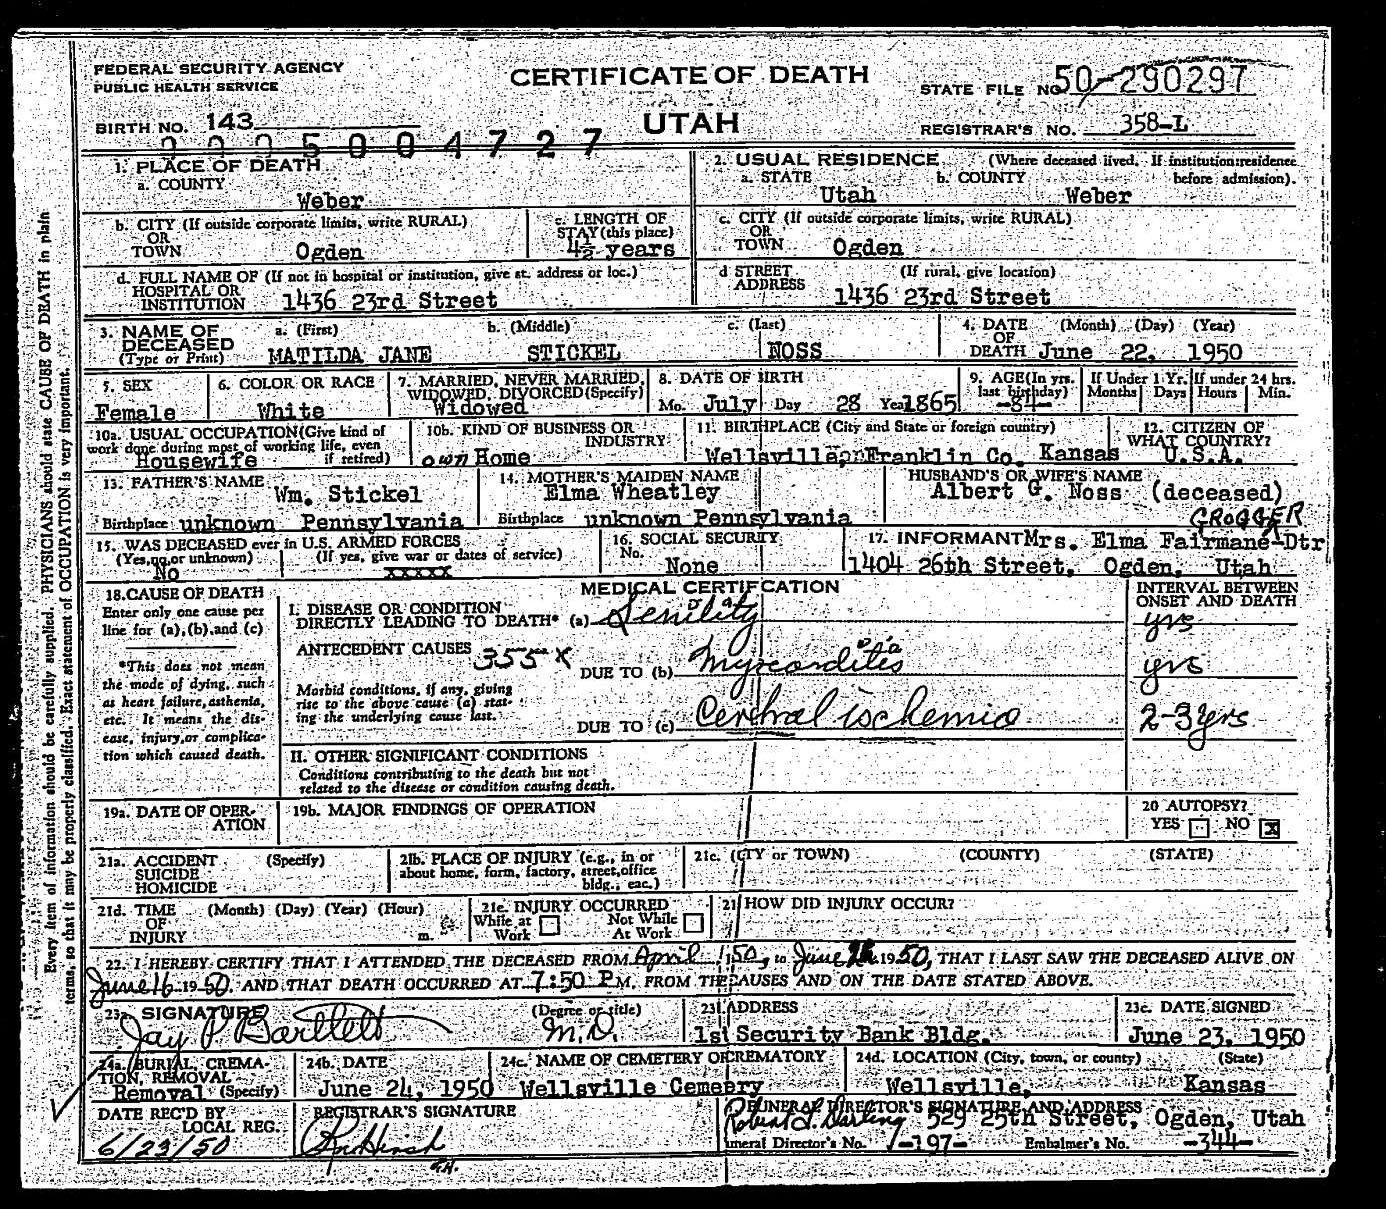 FEDERAL SECURITY AGENCY
PUBLIC HEALTH SERVICE
CERTIFICATE OF DEATH
UTAH
STATE FILE NO. 50-290297
BIRTH NO. 143
REGISTRAR'S NO. 358-L
2 2 2 5 0 0 4 7 2 7
1. PLACE OF DEATH
a. COUNTY
Weber
2. USUAL RESIDENCE (Where deceased lived. If institution: residence before admission).
a. STATE Utah b. COUNTY Weber
b. CITY (If outside corporate limits, write RURAL)
OR
TOWN Ogden
c. LENGTH OF
STAY (this place)
4½ years
c. CITY (If outside corporate limits, write RURAL)
OR
TOWN Ogden
d. FULL NAME OF (If not in hospital or institution, give st. address or loc.)
HOSPITAL OR
INSTITUTION 1436 23rd Street
d STREET (If rural, give location)
ADDRESS 1436 23rd Street
3. NAME OF DECEASED (Type or Print)
a. (First) b. (Middle) c. (Last)
MATILDA JANE STICKEL NOSS
4. DATE OF DEATH (Month) (Day) (Year)
June 22, 1950
5. SEX
Female
6. COLOR OR RACE
White
7. MARRIED, NEVER MARRIED,
WIDOWED, DIVORCED (Specify)
Widowed
8. DATE OF BIRTH
Mo. July Day 28 Year 1865
9. AGE (In yrs. last birthday)
-84-
If Under 1 Yr. Months Days
If under 24 hrs. Hours Min.
10a. USUAL OCCUPATION (Give kind of
work done during most of working life, even
if retired)
Housewife
10b. KIND OF BUSINESS OR
INDUSTRY
own Home
11. BIRTHPLACE (City and State or foreign country)
Wellsville, Franklin Co. Kansas
12. CITIZEN OF
WHAT COUNTRY?
U.S.A.
13. FATHER'S NAME
Wm. Stickel
Birthplace unknown Pennsylvania
14. MOTHER'S MAIDEN NAME
Elma Wheatley
Birthplace unknown Pennsylvania
HUSBAND'S OR WIFE'S NAME
Albert G. Noss (deceased)
15. WAS DECEASED ever in U.S. ARMED FORCES
(Yes, no, or unknown) (If yes, give war or dates of service)
No xxxxx
16. SOCIAL SECURITY
No.
None
GROGGER
17. INFORMANT Mrs. Elma Fairmane-Dtr
1404 26th Street, Ogden, Utah
18. CAUSE OF DEATH
Enter only one cause per
line for (a), (b), and (c)
*This does not mean
the mode of dying, such
as heart failure, asthenia,
etc. It means the dis-
ease, injury, or complica-
tion which caused death.
MEDICAL CERTIFICATION
INTERVAL BETWEEN
ONSET AND DEATH
I. DISEASE OR CONDITION
DIRECTLY LEADING TO DEATH* (a) Senility yrs
ANTECEDENT CAUSES 355X
DUE TO (b) Myocarditis yrs
Morbid conditions, if any, giving
rise to the above cause (a) stat-
ing the underlying cause last.
DUE TO (c) Cerebral ischemia 2-3 yrs
II. OTHER SIGNIFICANT CONDITIONS
Conditions contributing to the death but not
related to the disease or condition causing death.
19a. DATE OF OPER-
ATION
19b. MAJOR FINDINGS OF OPERATION
20 AUTOPSY?
YES NO X
21a. ACCIDENT (Specify)
SUICIDE
HOMICIDE
21b. PLACE OF INJURY (e.g., in or
about home, form, factory, street, office
bldg., eac.)
21c. (CITY or TOWN) (COUNTY) (STATE)
21d. TIME (Month) (Day) (Year) (Hour)
OF
INJURY m.
21e. INJURY OCCURRED
While at Work Not While At Work
21 HOW DID INJURY OCCUR?
22. I HEREBY CERTIFY THAT I ATTENDED THE DECEASED FROM April 1950, to June 1950, THAT I LAST SAW THE DECEASED ALIVE ON
June 16 1950. AND THAT DEATH OCCURRED AT 7:50 P M. FROM THE CAUSES AND ON THE DATE STATED ABOVE.
23a. SIGNATURE (Degree or title)
Jay P Bartlett M.D.
23. ADDRESS
1st Security Bank Bldg.
23c. DATE SIGNED
June 23, 1950
24a. BURIAL, CREMA-
TION, REMOVAL
Removal (Specify)
24b. DATE
June 24, 1950
24c. NAME OF CEMETERY OR CREMATORY
Wellsville Cemetery
24d. LOCATION (City, town, or county) (State)
Wellsville, Kansas
DATE REC'D BY
LOCAL REG.
6/23/50
REGISTRAR'S SIGNATURE
G.H.
FUNERAL DIRECTOR'S SIGNATURE AND ADDRESS
Robert L. Darling 529 25th Street, Ogden, Utah
uneral Director's No. -197- Embalmer's No. -344-
Every item of information should be carefully supplied. PHYSICIANS should state CAUSE OF DEATH in plain
terms, so that it may be properly classified. Exact statement of OCCUPATION is very important.